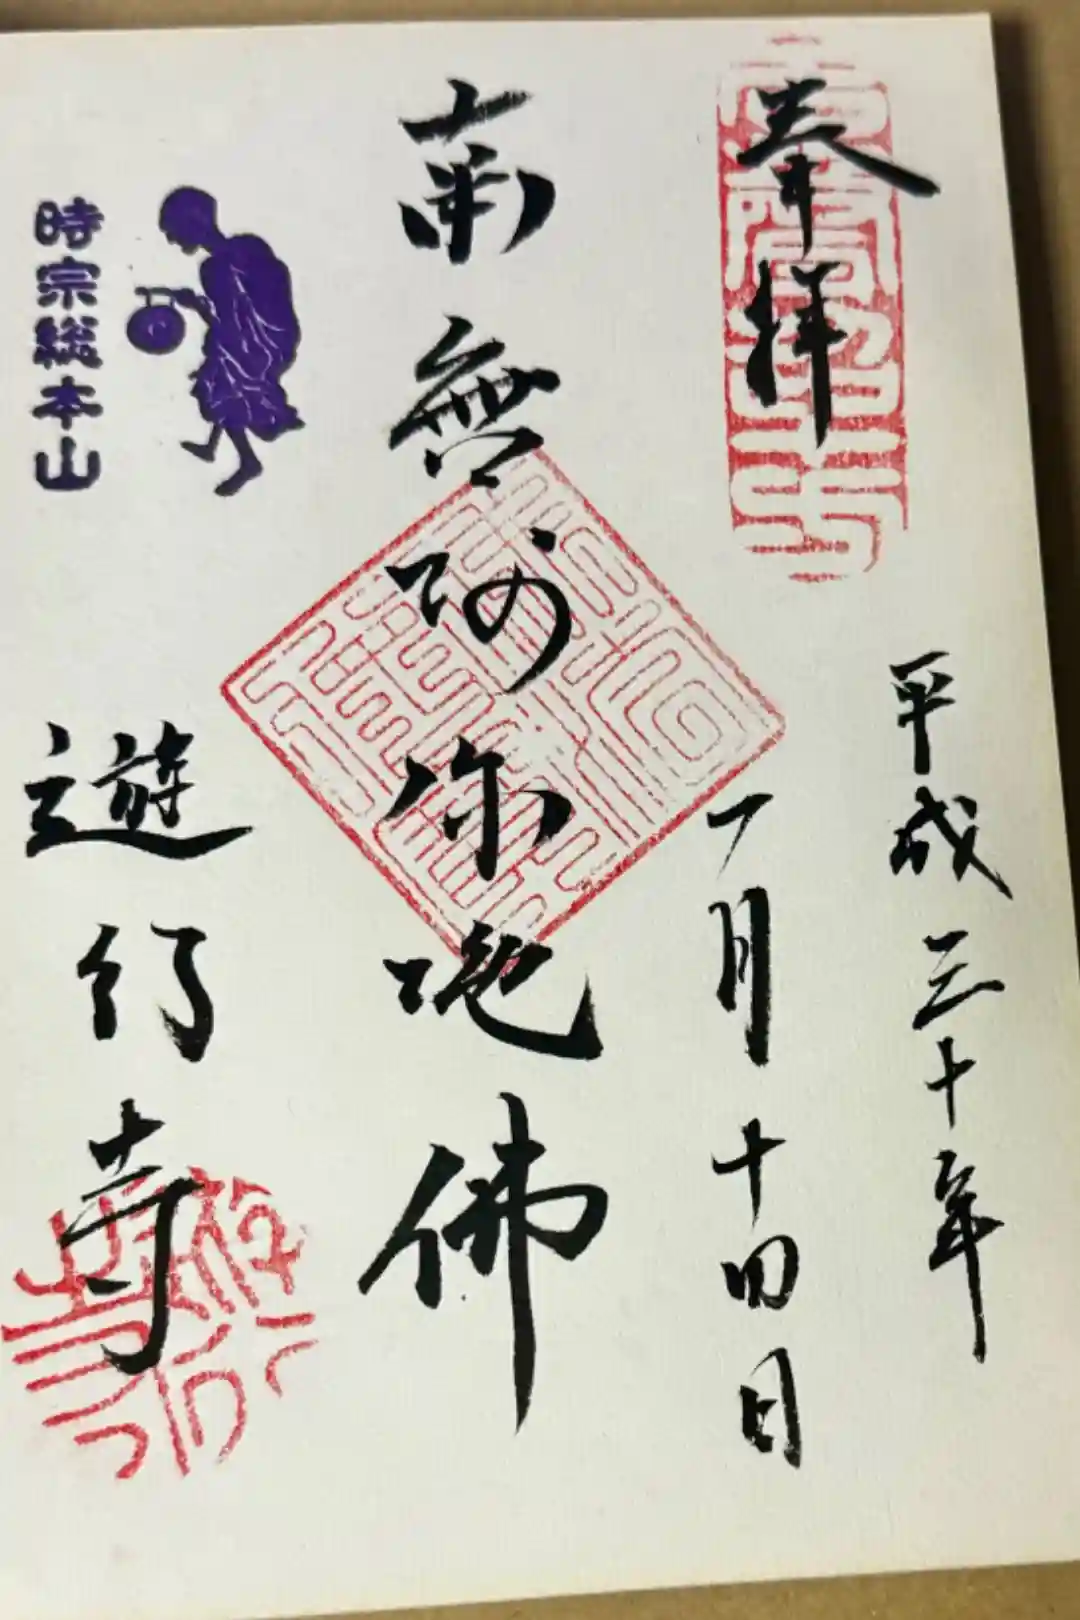 奉拝
平成三十年
一月十四日
南無阿弥陀佛
時宗総本山
遊行寺